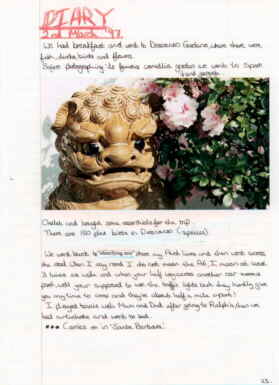 DIARY
2nd March '97
We had breakfast and went to Descanso Gardens, where there were
fish, ducks, birds and flowers.
Before photographing the famous camellia garden we went to Sport
Chalet and bought some essentials for the trip.
There are 150 plus birds in Descanso (species)
We went back to have my Pront lunch and then went across
the road. When I say road I do not mean the A61, I mean at least
3 times as wide and when your half way across another car comes
past well your supposed to use the traffic lights but they hardly give
you any time to cross and they're about half a mile apart!
I played tennis with Mum and Dad after going to Ralph's, then we
had and went to bed.
*** Carries on in 'Santa Barbara'
23